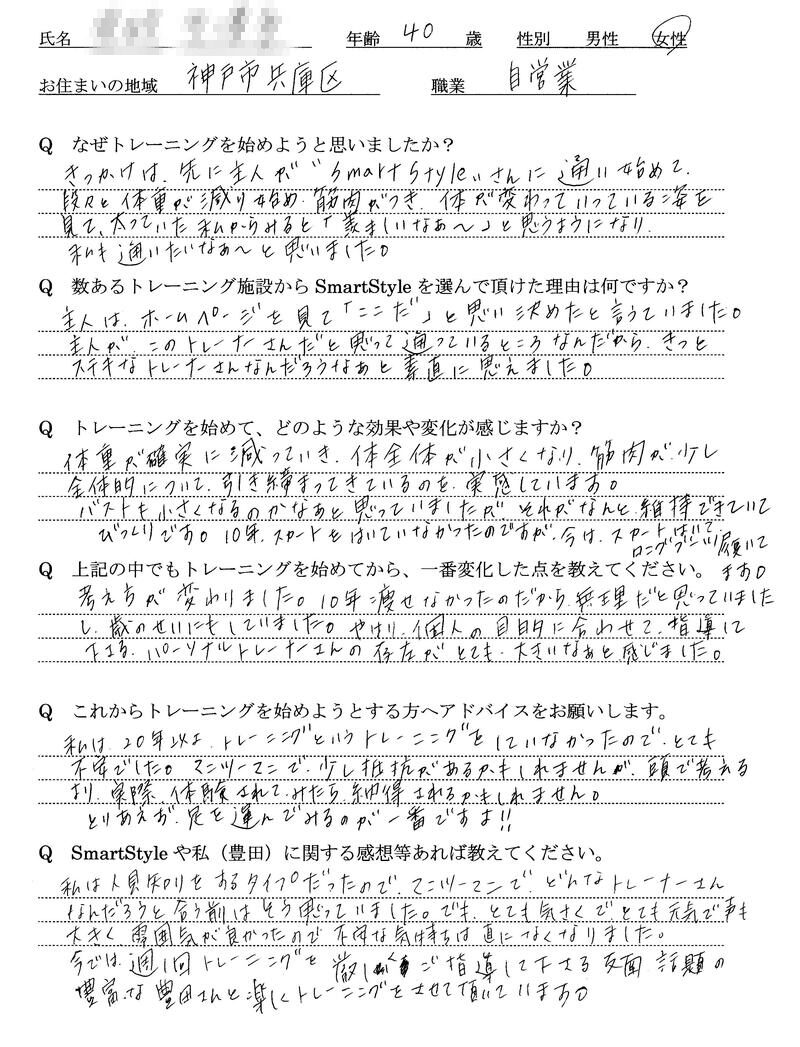 氏名 年齢 40 歳 性別 男性 女性
お住まいの地域 神戸市兵庫区 職業 自営業
Q なぜトレーニングを始めようと思いましたか？
きっかけは、先に主人が"SmartStyle"さんに通い始めて、
段々と体重が減り始め、筋肉がつき、体が変わっていっている姿を
見て、太っていた私からみると「羨ましいなぁ〜」と思うようになり、
私も通いたいなぁ〜と思いました。
Q 数あるトレーニング施設から SmartStyle を選んで頂けた理由は何ですか？
主人は、ホームページを見て「ここだ」と思い決めたと言っていました。
主人が、このトレーナーさんだと思って通っているところなんだから、きっと
ステキなトレーナーさんなんだろうなぁと素直に思えました。
Q トレーニングを始めて、どのような効果や変化が感じますか？
体重が確実に減っていき、体全体が小さくなり、筋肉が少し
全体的について、引き締まってきているのを、実感しています。
バストも小さくなるのかなぁと思っていましたが、それがなんと、維持できていて
びっくりです。10年、スカートをはいていなかったのですが、今は、スカートはいて、
ロングブーツ履いて
Q 上記の中でもトレーニングを始めてから、一番変化した点を教えてください。 ます。
考え方が変わりました。10年痩せなかったのだから、無理だと思っていました
し、歳のせいにもしていました。やはり、個人の目的に合わせて、指導して
下さる、パーソナルトレーナーさんの存在がとても、大きいなぁと感じました。
Q これからトレーニングを始めようとする方へアドバイスをお願いします。
私は、20年以上、トレーニングというトレーニングをしていなかったので、とても
不安でした。マンツーマンで、少し抵抗があるかもしれませんが、頭で考える
より、実際、体験されてみたら、納得されるかもしれません。
とりあえず、足を運んでみるのが一番ですよ!!
Q SmartStyle や私（豊田）に関する感想等あれば教えてください。
私は人見知りをするタイプだったので、マンツーマンで、どんなトレーナーさん
なんだろうと会う前はそう思っていました。でも、とても気さくで、とても元気で声も
大きく、雰囲気が良かったので不安な気持ちは直になくなりました。
今では、週1回トレーニングを厳しくご指導して下さる反面、話題の
豊富な豊田さんと楽しくトレーニングをさせて頂いています。